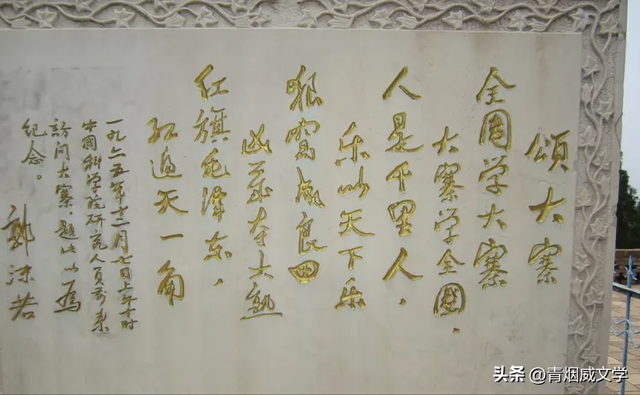 頌大寨
全國学大寨
大寨学全國，
人是千里人，
乐以天下乐
狼窩成良田
凶歲夺大熟
红旗毛泽东，
红过天一角
一九六五年十二月七日上午十时
中國科学院研究人员来
訪问大寨，题此以为
纪念。
郭沫若
头条 @青烟威文学